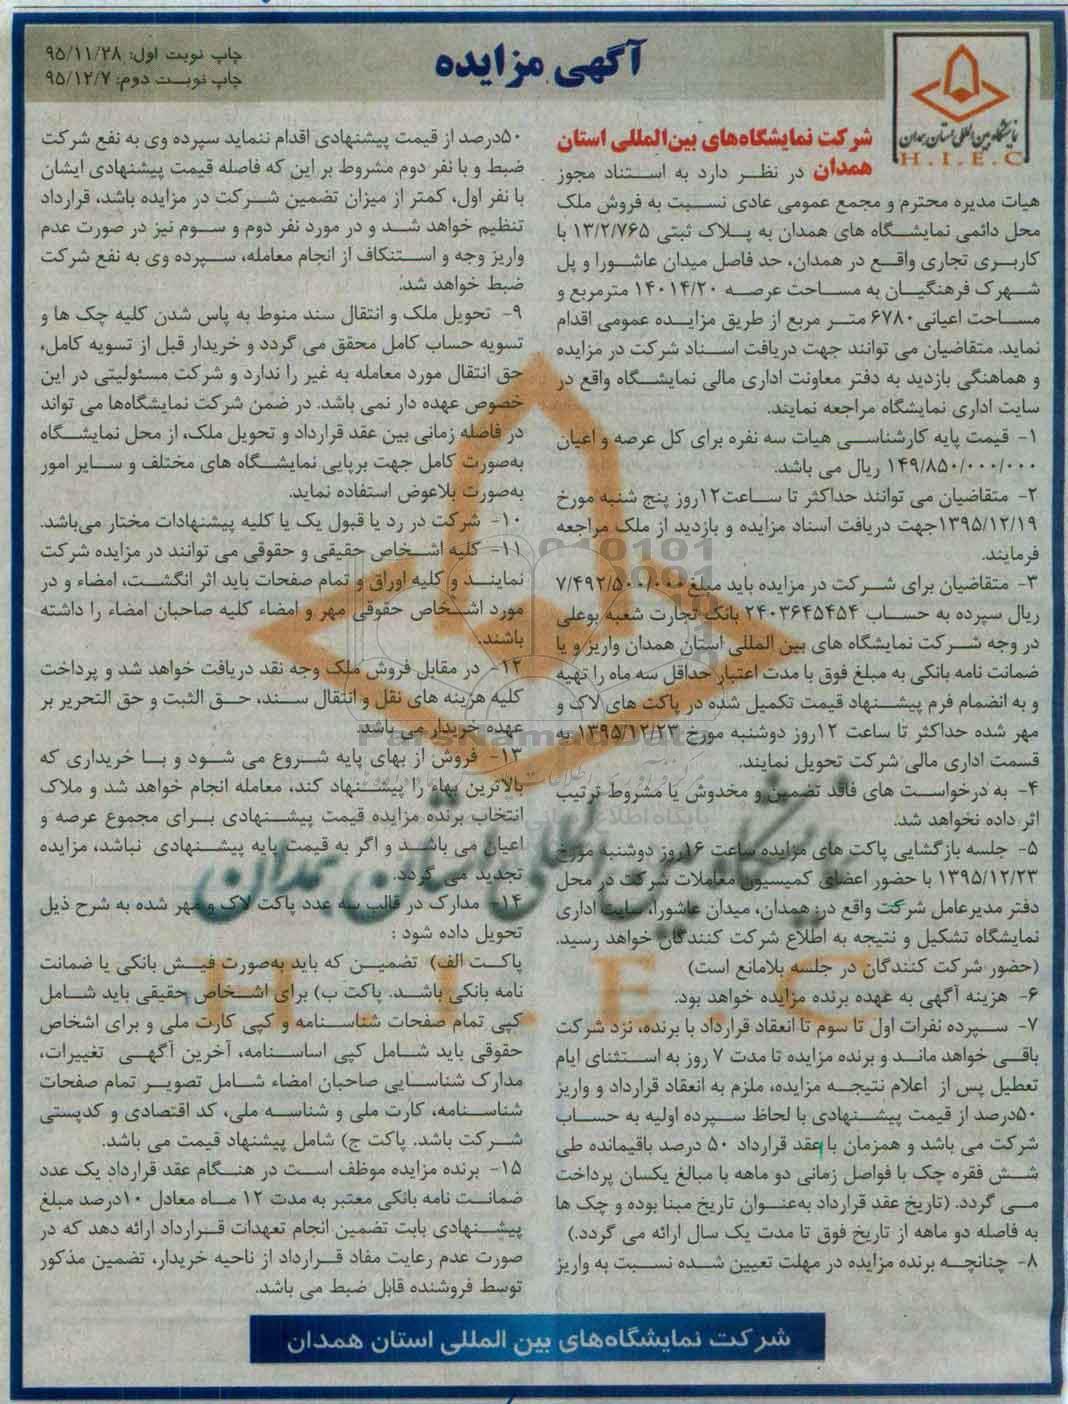 آگهی مزایده
چاپ نوبت اول: ۹۵/۱۱/۲۸
چاپ نوبت دوم: ۹۵/۱۲/۷
نمایشگاه بین المللی استان همدان
H.I.E.C
شرکت نمایشگاه‌های بین‌المللی استان
همدان در نظر دارد به استناد مجوز
هیات مدیره محترم و مجمع عمومی عادی نسبت به فروش ملک
محل دائمی نمایشگاه های همدان به پلاک ثبتی ۱۳/۲/۷۶۵ با
کاربری تجاری واقع در همدان، حد فاصل میدان عاشورا و پل
شهرک فرهنگیان به مساحت عرصه ۱۴۰۱۴/۲۰ مترمربع و
مساحت اعیانی۶۷۸۰ متر مربع از طریق مزایده عمومی اقدام
نماید. متقاضیان می توانند جهت دریافت اسناد شرکت در مزایده
و هماهنگی بازدید به دفتر معاونت اداری مالی نمایشگاه واقع در
سایت اداری نمایشگاه مراجعه نمایند.
۱- قیمت پایه کارشناسی هیات سه نفره برای کل عرصه و اعیان
۱۴۹/۸۵۰/۰۰۰/۰۰۰ ریال می باشد.
۲- متقاضیان می توانند حداکثر تا ساعت۱۲روز پنج شنبه مورخ
۱۳۹۵/۱۲/۱۹جهت دریافت اسناد مزایده و بازدید از ملک مراجعه
فرمایند.
۳- متقاضیان برای شرکت در مزایده باید مبلغ ۷/۴۹۲/۵۰۰/۰۰۰
ریال سپرده به حساب ۲۴۰۳۶۴۵۴۵۴ بانک تجارت شعبه بوعلی
در وجه شرکت نمایشگاه های بین المللی استان همدان واریز و یا
ضمانت نامه بانکی به مبلغ فوق با مدت اعتبار حداقل سه ماه را تهیه
و به انضمام فرم پیشنهاد قیمت تکمیل شده در پاکت های لاک و
مهر شده حداکثر تا ساعت ۱۲روز دوشنبه مورخ ۱۳۹۵/۱۲/۲۳ به
قسمت اداری مالی شرکت تحویل نمایند.
۴- به درخواست های فاقد تضمین و مخدوش یا مشروط ترتیب
اثر داده نخواهد شد.
۵- جلسه بازگشایی پاکت های مزایده ساعت ۱۶روز دوشنبه مورخ
۱۳۹۵/۱۲/۲۳ با حضور اعضای کمیسیون معاملات شرکت در محل
دفتر مدیرعامل شرکت واقع در: همدان، میدان عاشورا، سایت اداری
نمایشگاه تشکیل و نتیجه به اطلاع شرکت کنندگان خواهد رسید.
(حضور شرکت کنندگان در جلسه بلامانع است)
۶- هزینه آگهی به عهده برنده مزایده خواهد بود.
۷- سپرده نفرات اول تا سوم تا انعقاد قرارداد با برنده، نزد شرکت
باقی خواهد ماند و برنده مزایده تا مدت ۷ روز به استثنای ایام
تعطیل پس از اعلام نتیجه مزایده، ملزم به انعقاد قرارداد و واریز
۵۰درصد از قیمت پیشنهادی با لحاظ سپرده اولیه به حساب
شرکت می باشد و همزمان با عقد قرارداد ۵۰ درصد باقیمانده طی
شش فقره چک با فواصل زمانی دو ماهه با مبالغ یکسان پرداخت
می گردد. (تاریخ عقد قرارداد به‌عنوان تاریخ مبنا بوده و چک ها
به فاصله دو ماهه از تاریخ فوق تا مدت یک سال ارائه می گردد.)
۸- چنانچه برنده مزایده در مهلت تعیین شده نسبت به واریز
۵۰درصد از قیمت پیشنهادی اقدام ننماید سپرده وی به نفع شرکت
ضبط و با نفر دوم مشروط بر این که فاصله قیمت پیشنهادی ایشان
با نفر اول، کمتر از میزان تضمین شرکت در مزایده باشد، قرارداد
تنظیم خواهد شد و در مورد نفر دوم و سوم نیز در صورت عدم
واریز وجه و استنکاف از انجام معامله، سپرده وی به نفع شرکت
ضبط خواهد شد.
۹- تحویل ملک و انتقال سند منوط به پاس شدن کلیه چک ها و
تسویه حساب کامل محقق می گردد و خریدار قبل از تسویه کامل،
حق انتقال مورد معامله به غیر را ندارد و شرکت مسئولیتی در این
خصوص عهده دار نمی باشد. در ضمن شرکت نمایشگاه‌ها می تواند
در فاصله زمانی بین عقد قرارداد و تحویل ملک، از محل نمایشگاه
به‌صورت کامل جهت برپایی نمایشگاه های مختلف و سایر امور
به‌صورت بلاعوض استفاده نماید.
۱۰- شرکت در رد یا قبول یک یا کلیه پیشنهادات مختار می‌باشد.
۱۱- کلیه اشخاص حقیقی و حقوقی می توانند در مزایده شرکت
نمایند و کلیه اوراق و تمام صفحات باید اثر انگشت، امضاء و در
مورد اشخاص حقوقی مهر و امضاء کلیه صاحبان امضاء را داشته
باشند.
۱۲- در مقابل فروش ملک وجه نقد دریافت خواهد شد و پرداخت
کلیه هزینه های نقل و انتقال سند، حق الثبت و حق التحریر بر
عهده خریدار می باشد.
۱۳- فروش از بهای پایه شروع می شود و با خریداری که
بالاترین بهاء را پیشنهاد کند، معامله انجام خواهد شد و ملاک
انتخاب برنده مزایده قیمت پیشنهادی برای مجموع عرصه و
اعیان می باشد و اگر به قیمت پایه پیشنهادی نباشد، مزایده
تجدید می گردد.
۱۴- مدارک در قالب سه عدد پاکت لاک و مهر شده به شرح ذیل
تحویل داده شود :
پاکت الف) تضمین که باید به‌صورت فیش بانکی یا ضمانت
نامه بانکی باشد. پاکت ب) برای اشخاص حقیقی باید شامل
کپی تمام صفحات شناسنامه و کپی کارت ملی و برای اشخاص
حقوقی باید شامل کپی اساسنامه، آخرین آگهی تغییرات،
مدارک شناسایی صاحبان امضاء شامل تصویر تمام صفحات
شناسنامه، کارت ملی و شناسه ملی، کد اقتصادی و کدپستی
شرکت باشد. پاکت ج) شامل پیشنهاد قیمت می باشد.
۱۵- برنده مزایده موظف است در هنگام عقد قرارداد یک عدد
ضمانت نامه بانکی معتبر به مدت ۱۲ ماه معادل ۱۰درصد مبلغ
پیشنهادی بابت تضمین انجام تعهدات قرارداد ارائه دهد که در
صورت عدم رعایت مفاد قرارداد از ناحیه خریدار، تضمین مذکور
توسط فروشنده قابل ضبط می باشد.
نمایشگاه بین المللی استان همدان
H.I.E.C
ParsNamadData
شرکت نمایشگاه‌های بین المللی استان همدان